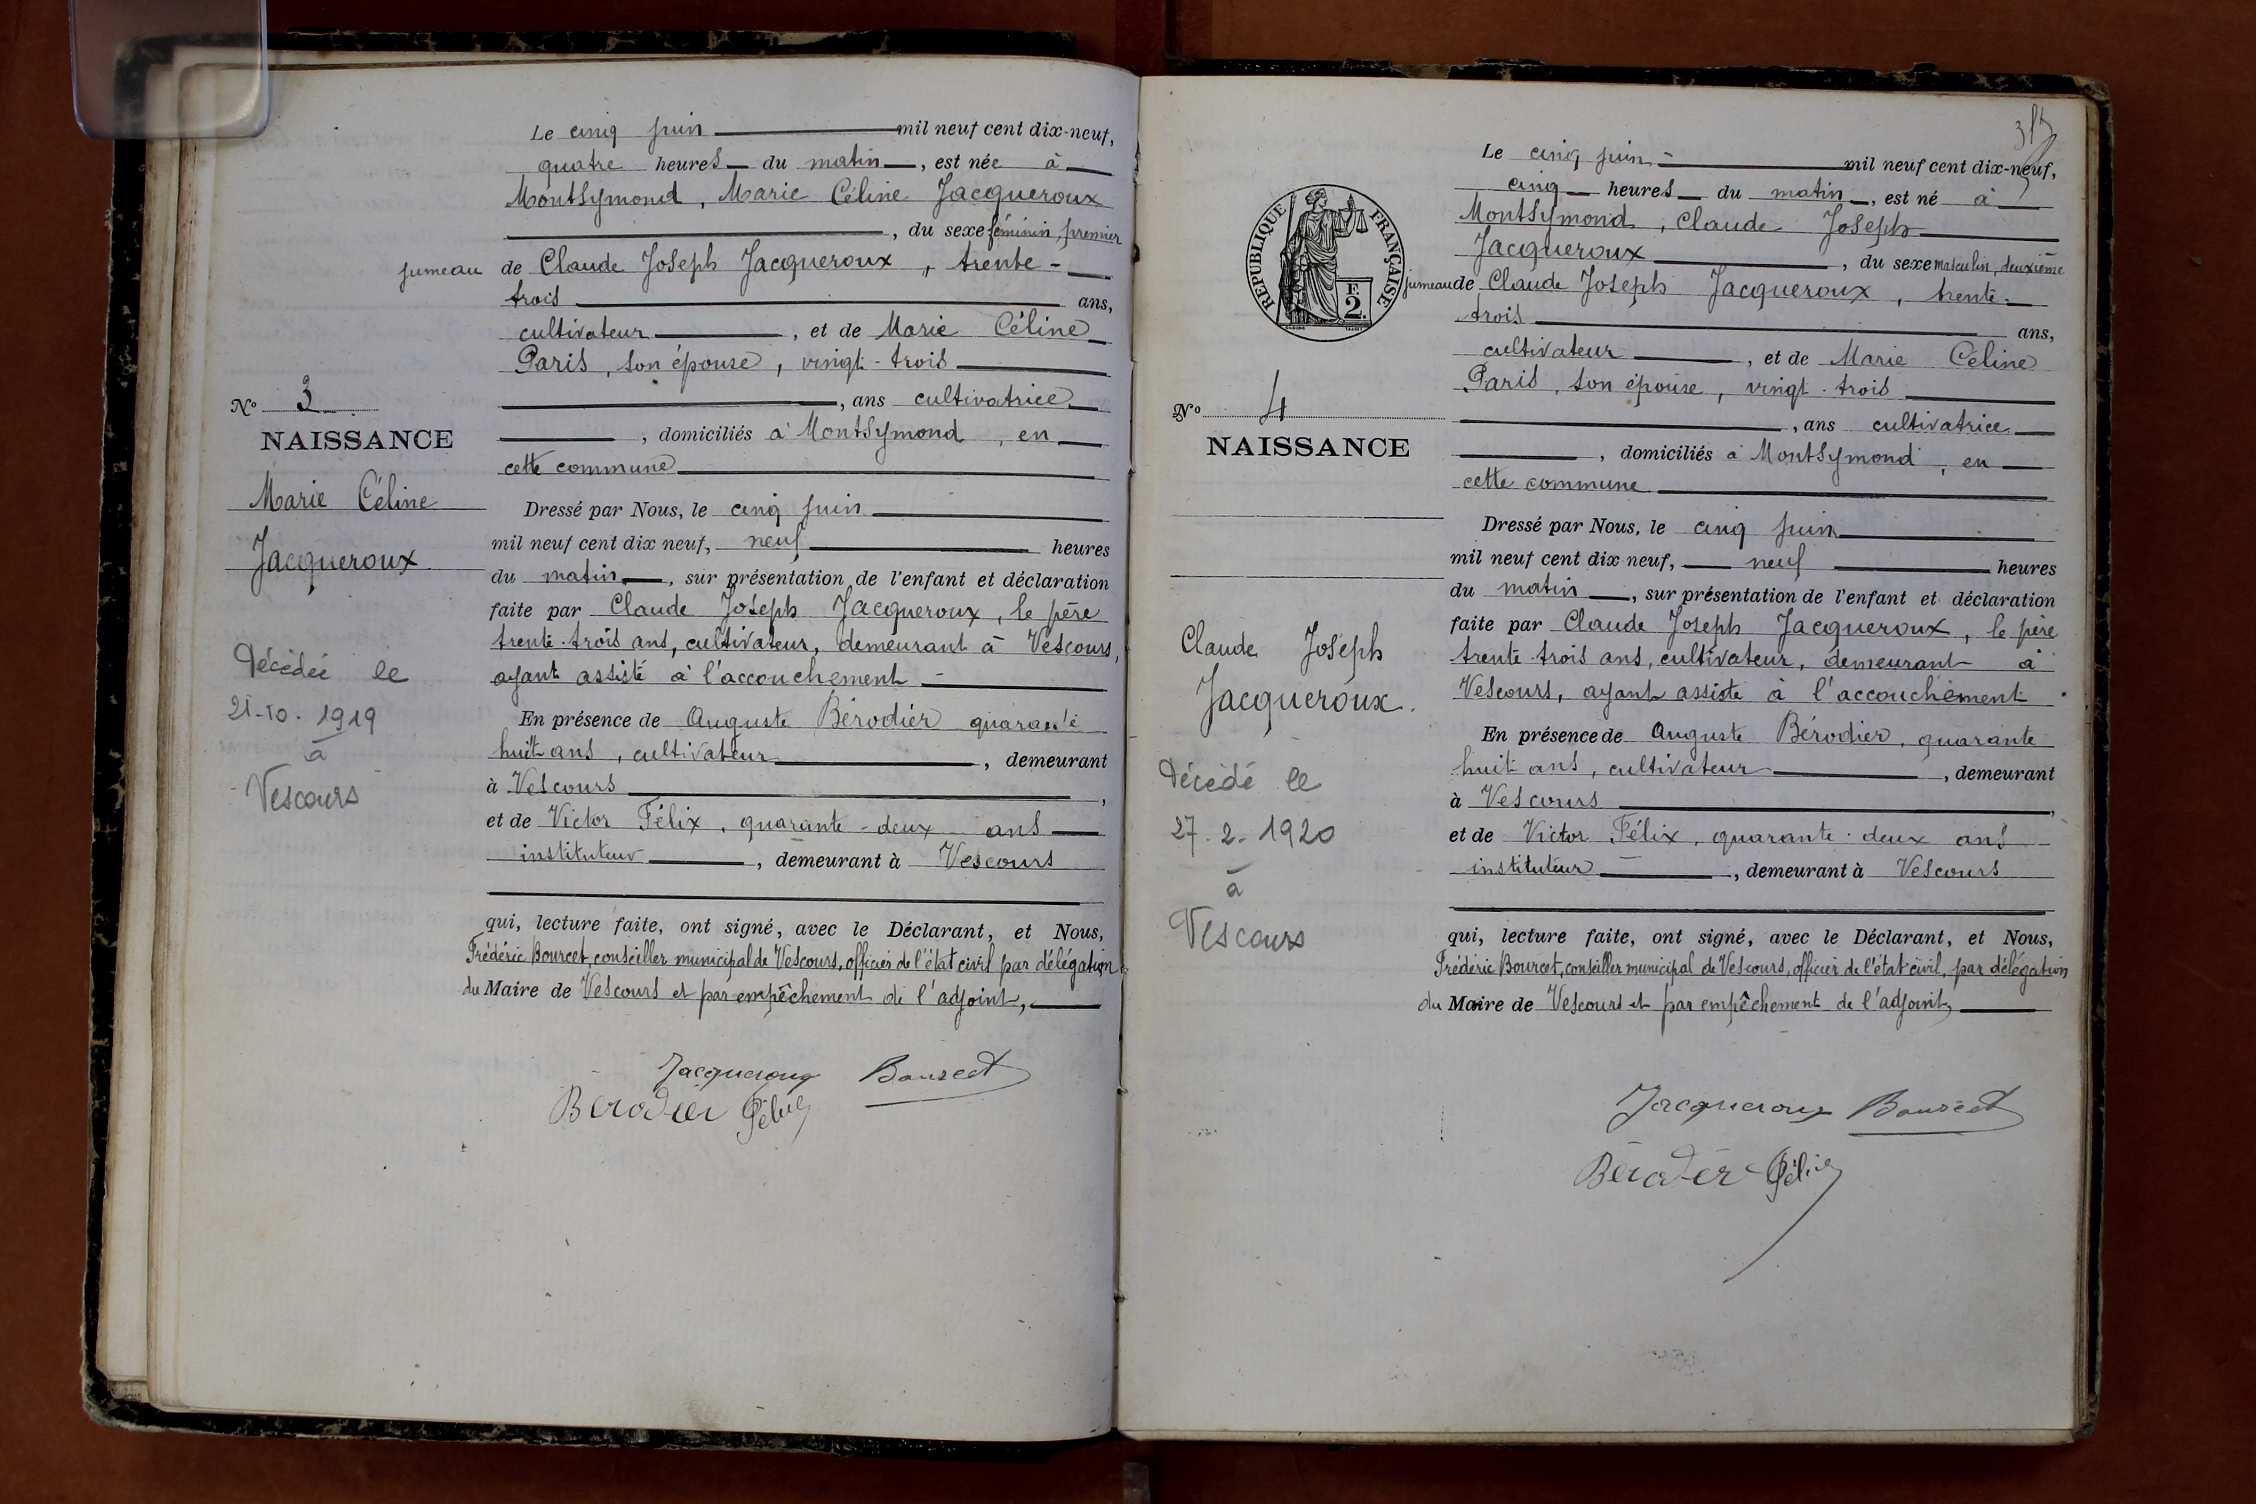 Le cinq juin mil neuf cent dix-neuf,
quatre heures du matin, est née à
Montsymond, Marie Céline Jacqueroux
, du sexe féminin, premier
jumeau de Claude Joseph Jacqueroux, trente-
trois ans,
cultivateur, et de Marie Céline
Paris, son épouse, vingt-trois
, ans cultivatrice
, domiciliés à Montsymond, en
cette commune
Dressé par Nous, le cinq juin
mil neuf cent dix neuf, neuf heures
du matin, sur présentation de l'enfant et déclaration
faite par Claude Joseph Jacqueroux, le père
trente-trois ans, cultivateur, demeurant à Vescours,
ayant assisté à l'accouchement -
En présence de Auguste Bérodier quarante
huit ans, cultivateur, demeurant
à Vescours,
et de Victor Félix, quarante-deux ans
instituteur, demeurant à Vescours
qui, lecture faite, ont signé, avec le Déclarant, et Nous,
Frédéric Bourcet, conseiller municipal de Vescours, officier de l'état civil par délégation
du Maire de Vescours et par empêchement de l'adjoint,
Jacqueroux Bourcet
Bérodier Félix
No 3
NAISSANCE
Marie Céline
Jacqueroux
Décédée le
21-10-1919
à
Vescours
Le cinq juin - mil neuf cent dix-neuf,
cinq heures du matin, est né à
Montsymond, Claude Joseph
Jacqueroux, du sexe masculin, deuxième
jumeau de Claude Joseph Jacqueroux, trente-
trois ans,
cultivateur, et de Marie Céline
Paris, son épouse, vingt-trois
, ans cultivatrice
, domiciliés à Montsymond, en
cette commune
Dressé par Nous, le cinq juin
mil neuf cent dix neuf, neuf heures
du matin, sur présentation de l'enfant et déclaration
faite par Claude Joseph Jacqueroux, le père
trente-trois ans, cultivateur, demeurant à
Vescours, ayant assisté à l'accouchement
En présence de Auguste Bérodier, quarante
huit ans, cultivateur, demeurant
à Vescours,
et de Victor Félix, quarante-deux ans
instituteur, demeurant à Vescours
qui, lecture faite, ont signé, avec le Déclarant, et Nous,
Frédéric Bourcet, conseiller municipal de Vescours, officier de l'état civil, par délégation
du Maire de Vescours et par empêchement de l'adjoint,
Jacqueroux Bourcet
Bérodier Félix
RÉPUBLIQUE FRANÇAISE
F.
2.
No 4
NAISSANCE
Claude Joseph
Jacqueroux.
Décédé le
27-2-1920
à
Vescours